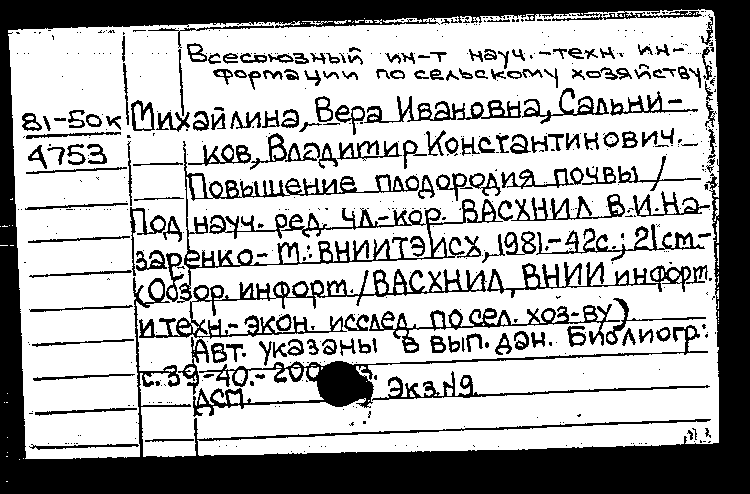 Всесоюзный ин-т науч.-техн. ин-
формации по сельскому хозяйству
81-50к Михайлина, Вера Ивановна, Сальни-
4753 ков, Владимир Константинович.
Повышение плодородия почвы /
Под науч. ред. чл.-кор. ВАСХНИЛ В.И. На-
заренко.- М.: ВНИИТЭИСХ, 1981.- 42с.; 21см.-
(Обзор. информ. / ВАСХНИЛ, ВНИИ информ.
и техн.-экон. исслед. по сел. хоз-ву).
Авт. указаны в вып. дан. Библиогр.:
с. 39-40.- 200
ДСП. Экз.№9